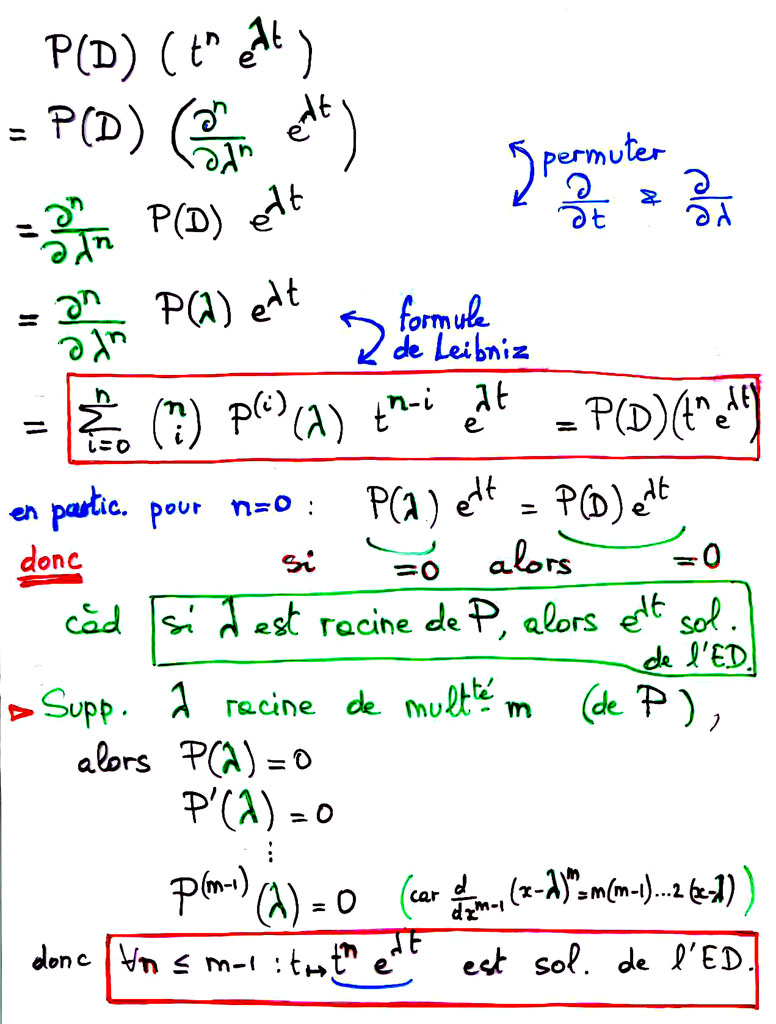 P(D) (tⁿ e^{λt})
= P(D) (∂ⁿ/∂λⁿ e^{λt})
permuter
∂/∂t & ∂/∂λ
= ∂ⁿ/∂λⁿ P(D) e^{λt}
= ∂ⁿ/∂λⁿ P(λ) e^{λt}
formule
de Leibniz
= ∑_{i=0}^{n} (n i) P^{(i)}(λ) t^{n-i} e^{λt} = P(D)(tⁿ e^{λt})
en partic. pour n=0 : P(λ) e^{λt} = P(D) e^{λt}
donc si =0 alors =0
càd si λ est racine de P, alors e^{λt} sol.
de l'ED.
▷ Supp. λ racine de mult^{té} m (de P),
alors P(λ) = 0
P'(λ) = 0
⋮
P^{(m-1)}(λ) = 0 (car d/dx^{m-1} (x-λ)^m = m(m-1)...2 (x-λ))
donc ∀n ≤ m-1 : t ↦ tⁿ e^{λt} est sol. de l'ED.